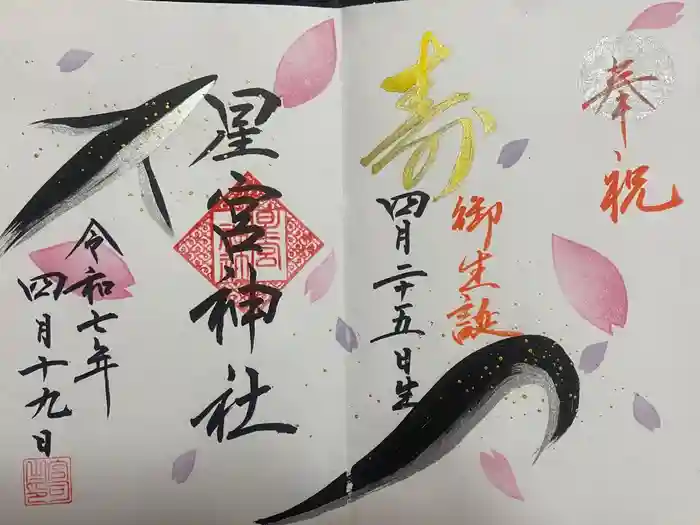 奉祝
御生誕
寿
四月二十五日生
星宮神社
令和七年
四月十九日